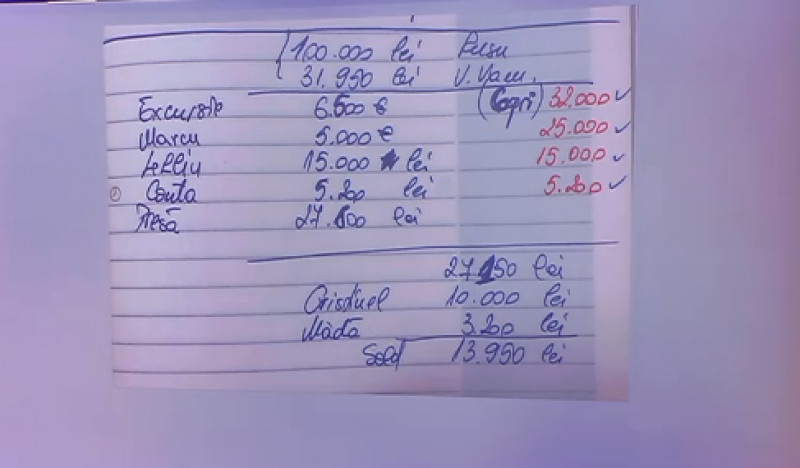 100.000 lei Rusu
31.950 lei V. Vam.
Excursie 6.500 € (Copri) 32.000 ✓
Marcu 5.000 € 25.000 ✓
15.000 lei 15.000 ✓
Conta 5.200 lei 5.200 ✓
Presă 27.800 lei
27.150 lei
10.000 lei
Mada 3.200 lei
Sold 13.950 lei